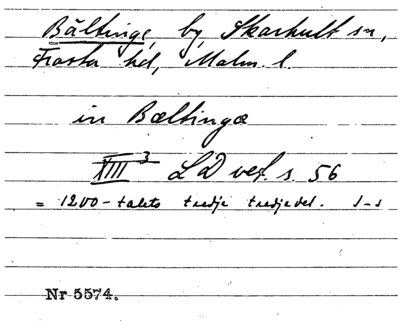 Bältinge, by, Skarhult sn,
Frosta hd, Malm. l.
in Bæltingæ
XIII 3 LD vet. s. 56
= 1200-talets tredje tredjedel. 1-1
Nr 5574.